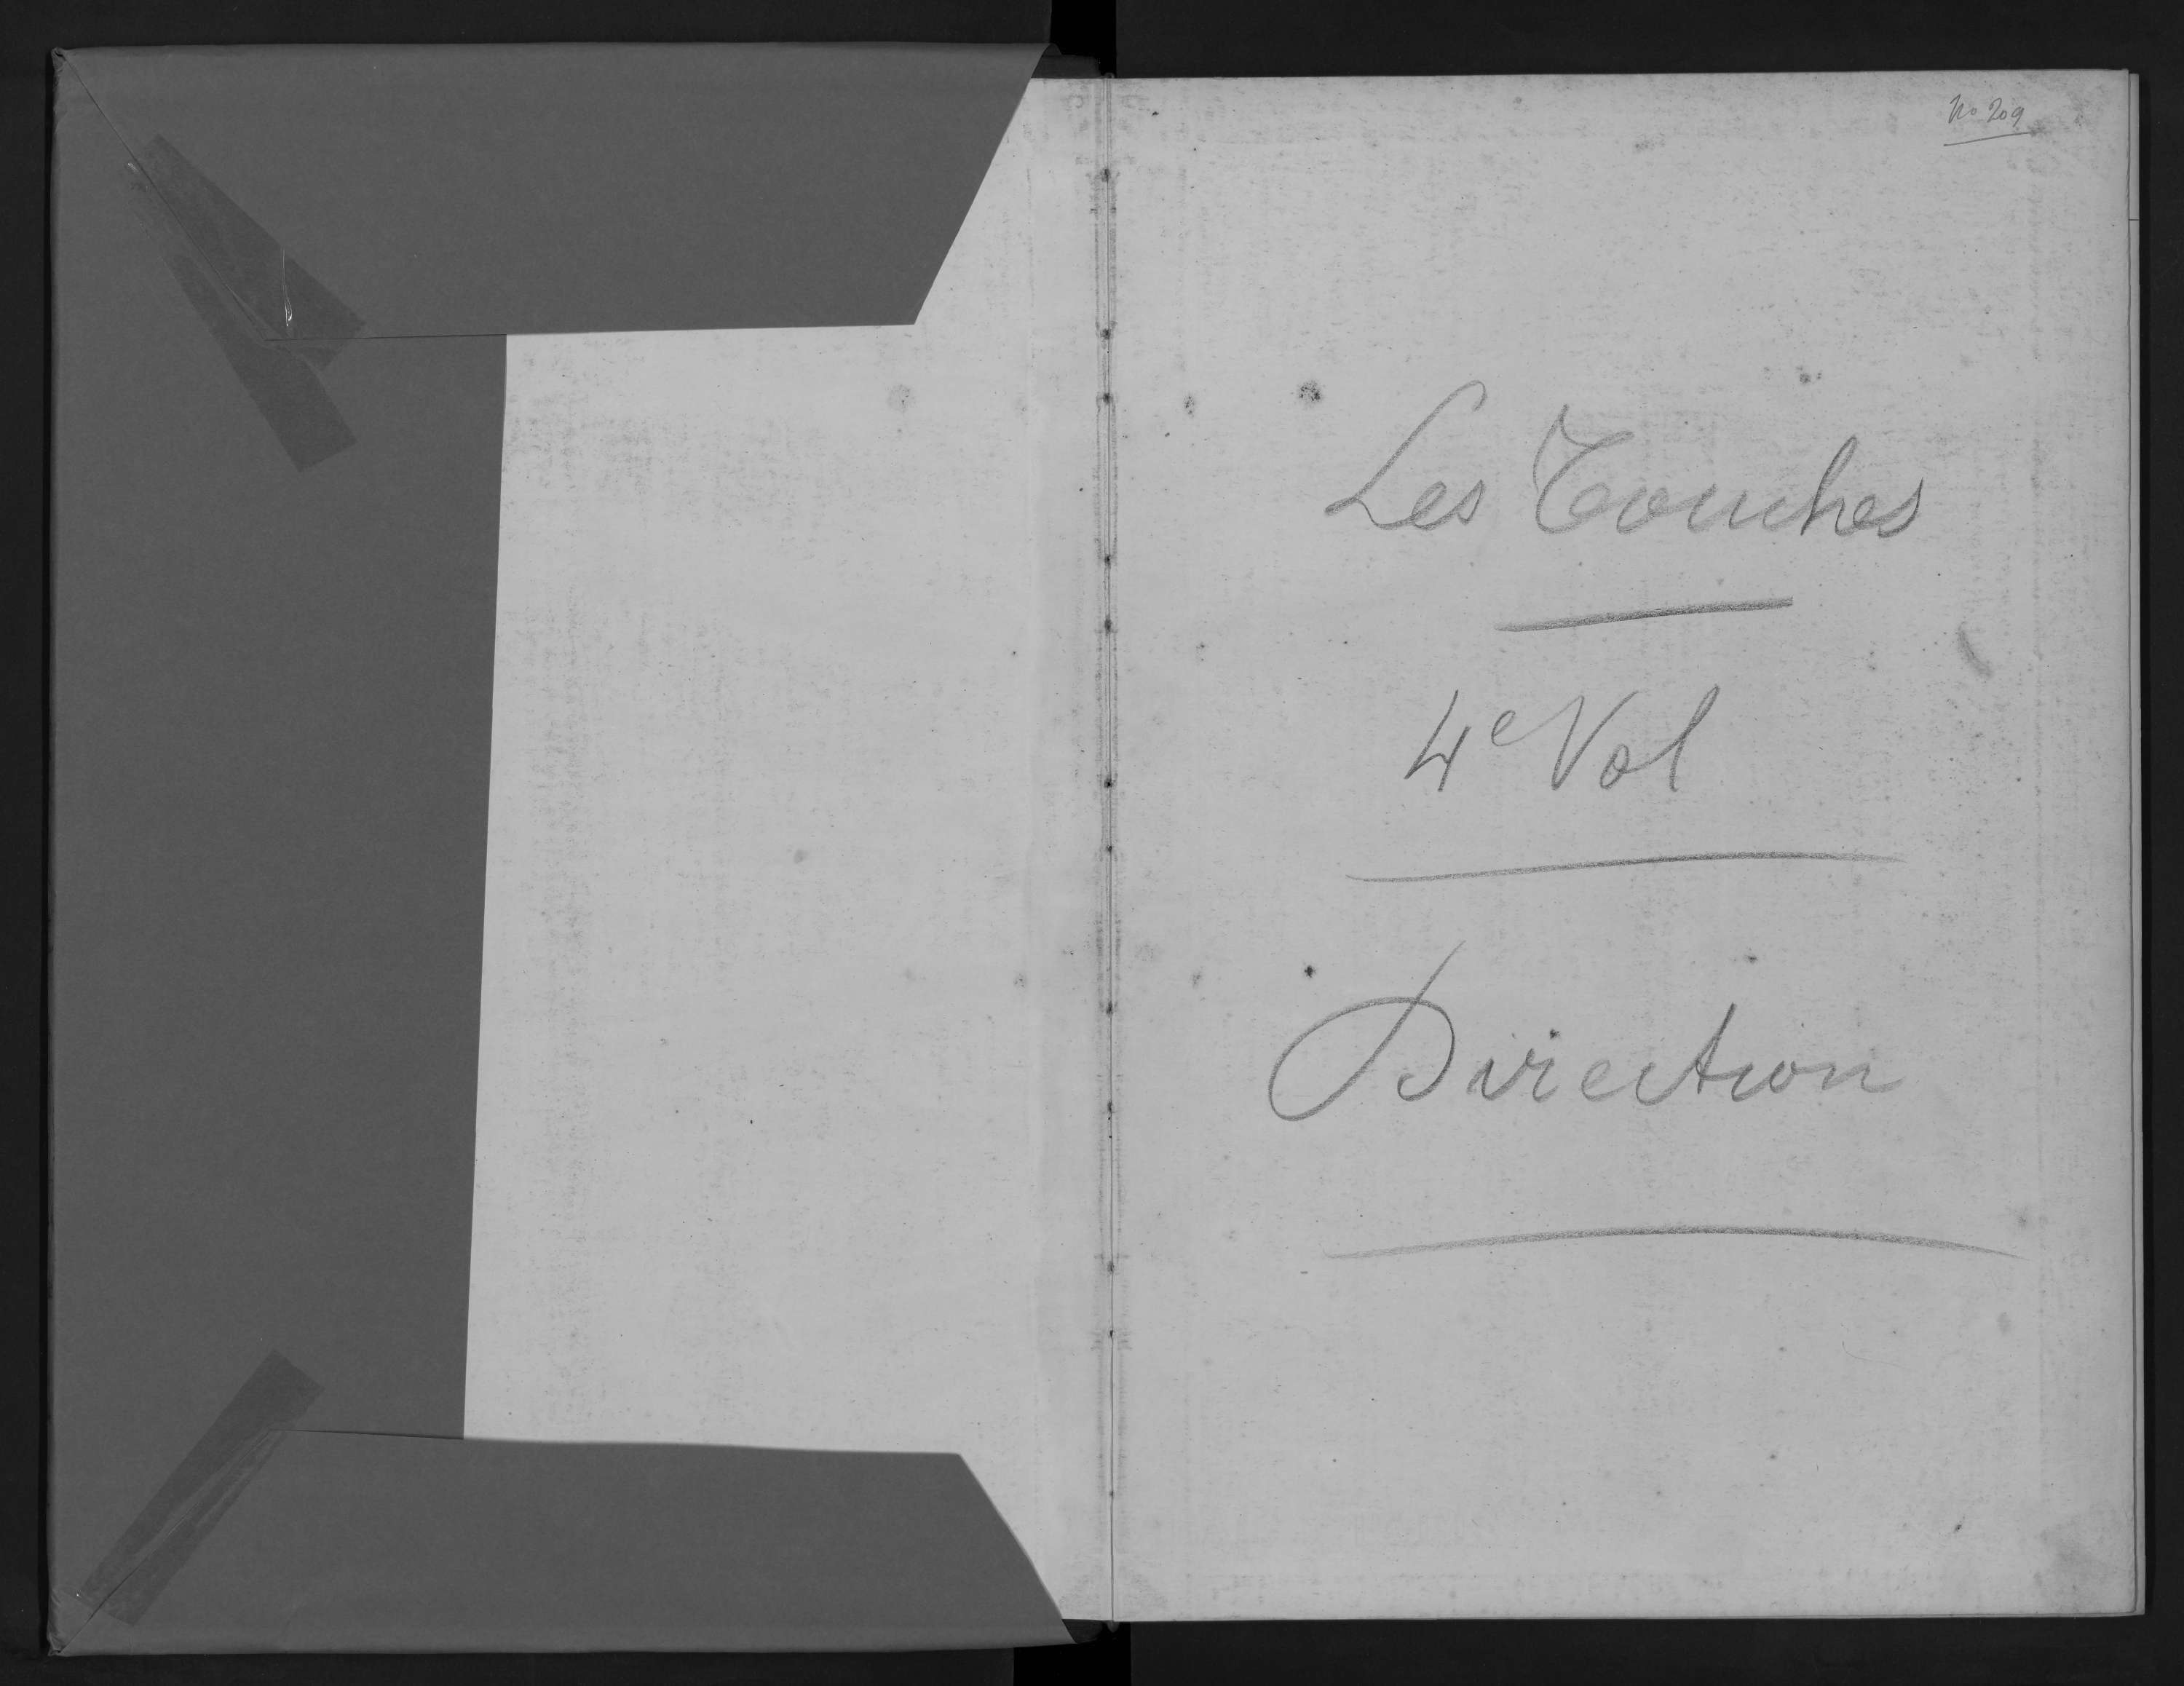 No 209
Les Touches
4e Vol
Direction